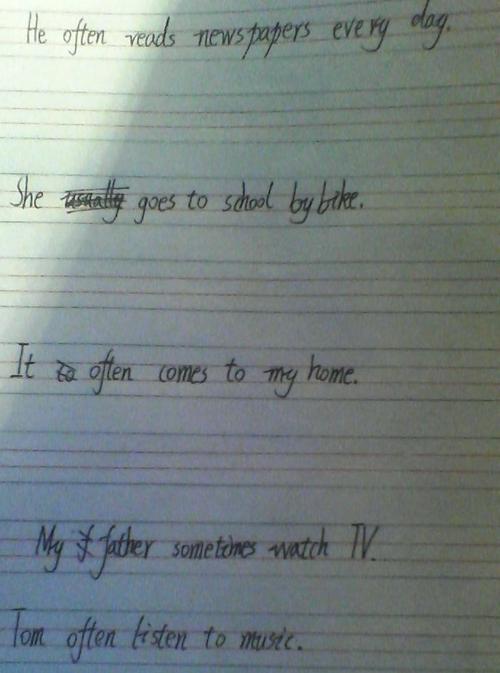 He often reads newspapers every day.
She goes to school by bike.
It often comes to my home.
My father sometimes watch TV.
Tom often listen to music.